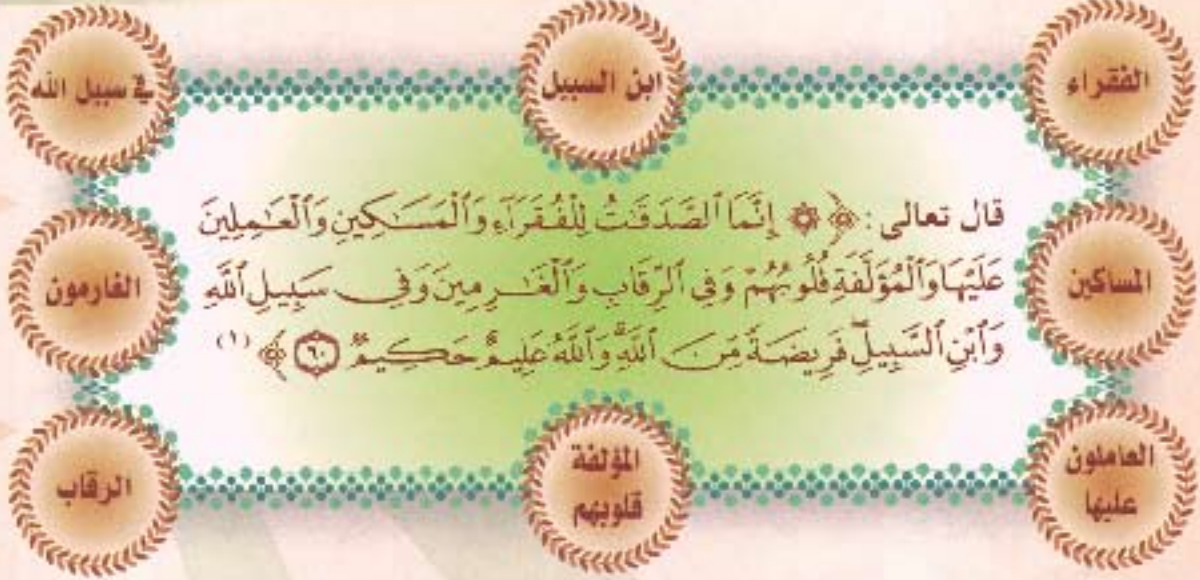 الفقراء
ابن السبيل
في سبيل الله
قال تعالى : ﴿ ۞ إِنَّمَا ٱلصَّدَقَٰتُ لِلْفُقَرَآءِ وَٱلْمَسَٰكِينِ وَٱلْعَٰمِلِينَ
عَلَيْهَا وَٱلْمُؤَلَّفَةِ قُلُوبُهُمْ وَفِي ٱلرِّقَابِ وَٱلْغَٰرِمِينَ وَفِي سَبِيلِ ٱللَّهِ
وَٱبْنِ ٱلسَّبِيلِ ۖ فَرِيضَةً مِّنَ ٱللَّهِ ۗ وَٱللَّهُ عَلِيمٌ حَكِيمٌ ٦٠ ﴾ (١)
المساكين
الغارمون
العاملون
عليها
المؤلفة
قلوبهم
الرقاب